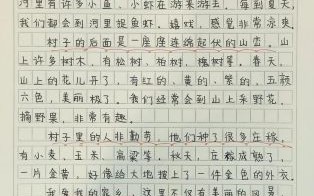 河里有许多小鱼、小虾在游来游去。每到夏天,
我们都会到河里捉鱼虾、嬉戏,感觉非常凉爽。
村子的后面是一座座连绵起伏的山峦。
山上许多树木,有松树、柏树、槐树等。春天,
山上的花儿开了,有红的、黄的、紫的,五颜
六色,美丽极了。我们经常会到山上采野花,
摘野果,非常有趣。
村子里的人非勤劳,他们种了很多庄稼,
有小麦、玉米、高粱等。秋天,庄稼成熟了,
一片金黄,好像给大地披上了一件金色的外衣。